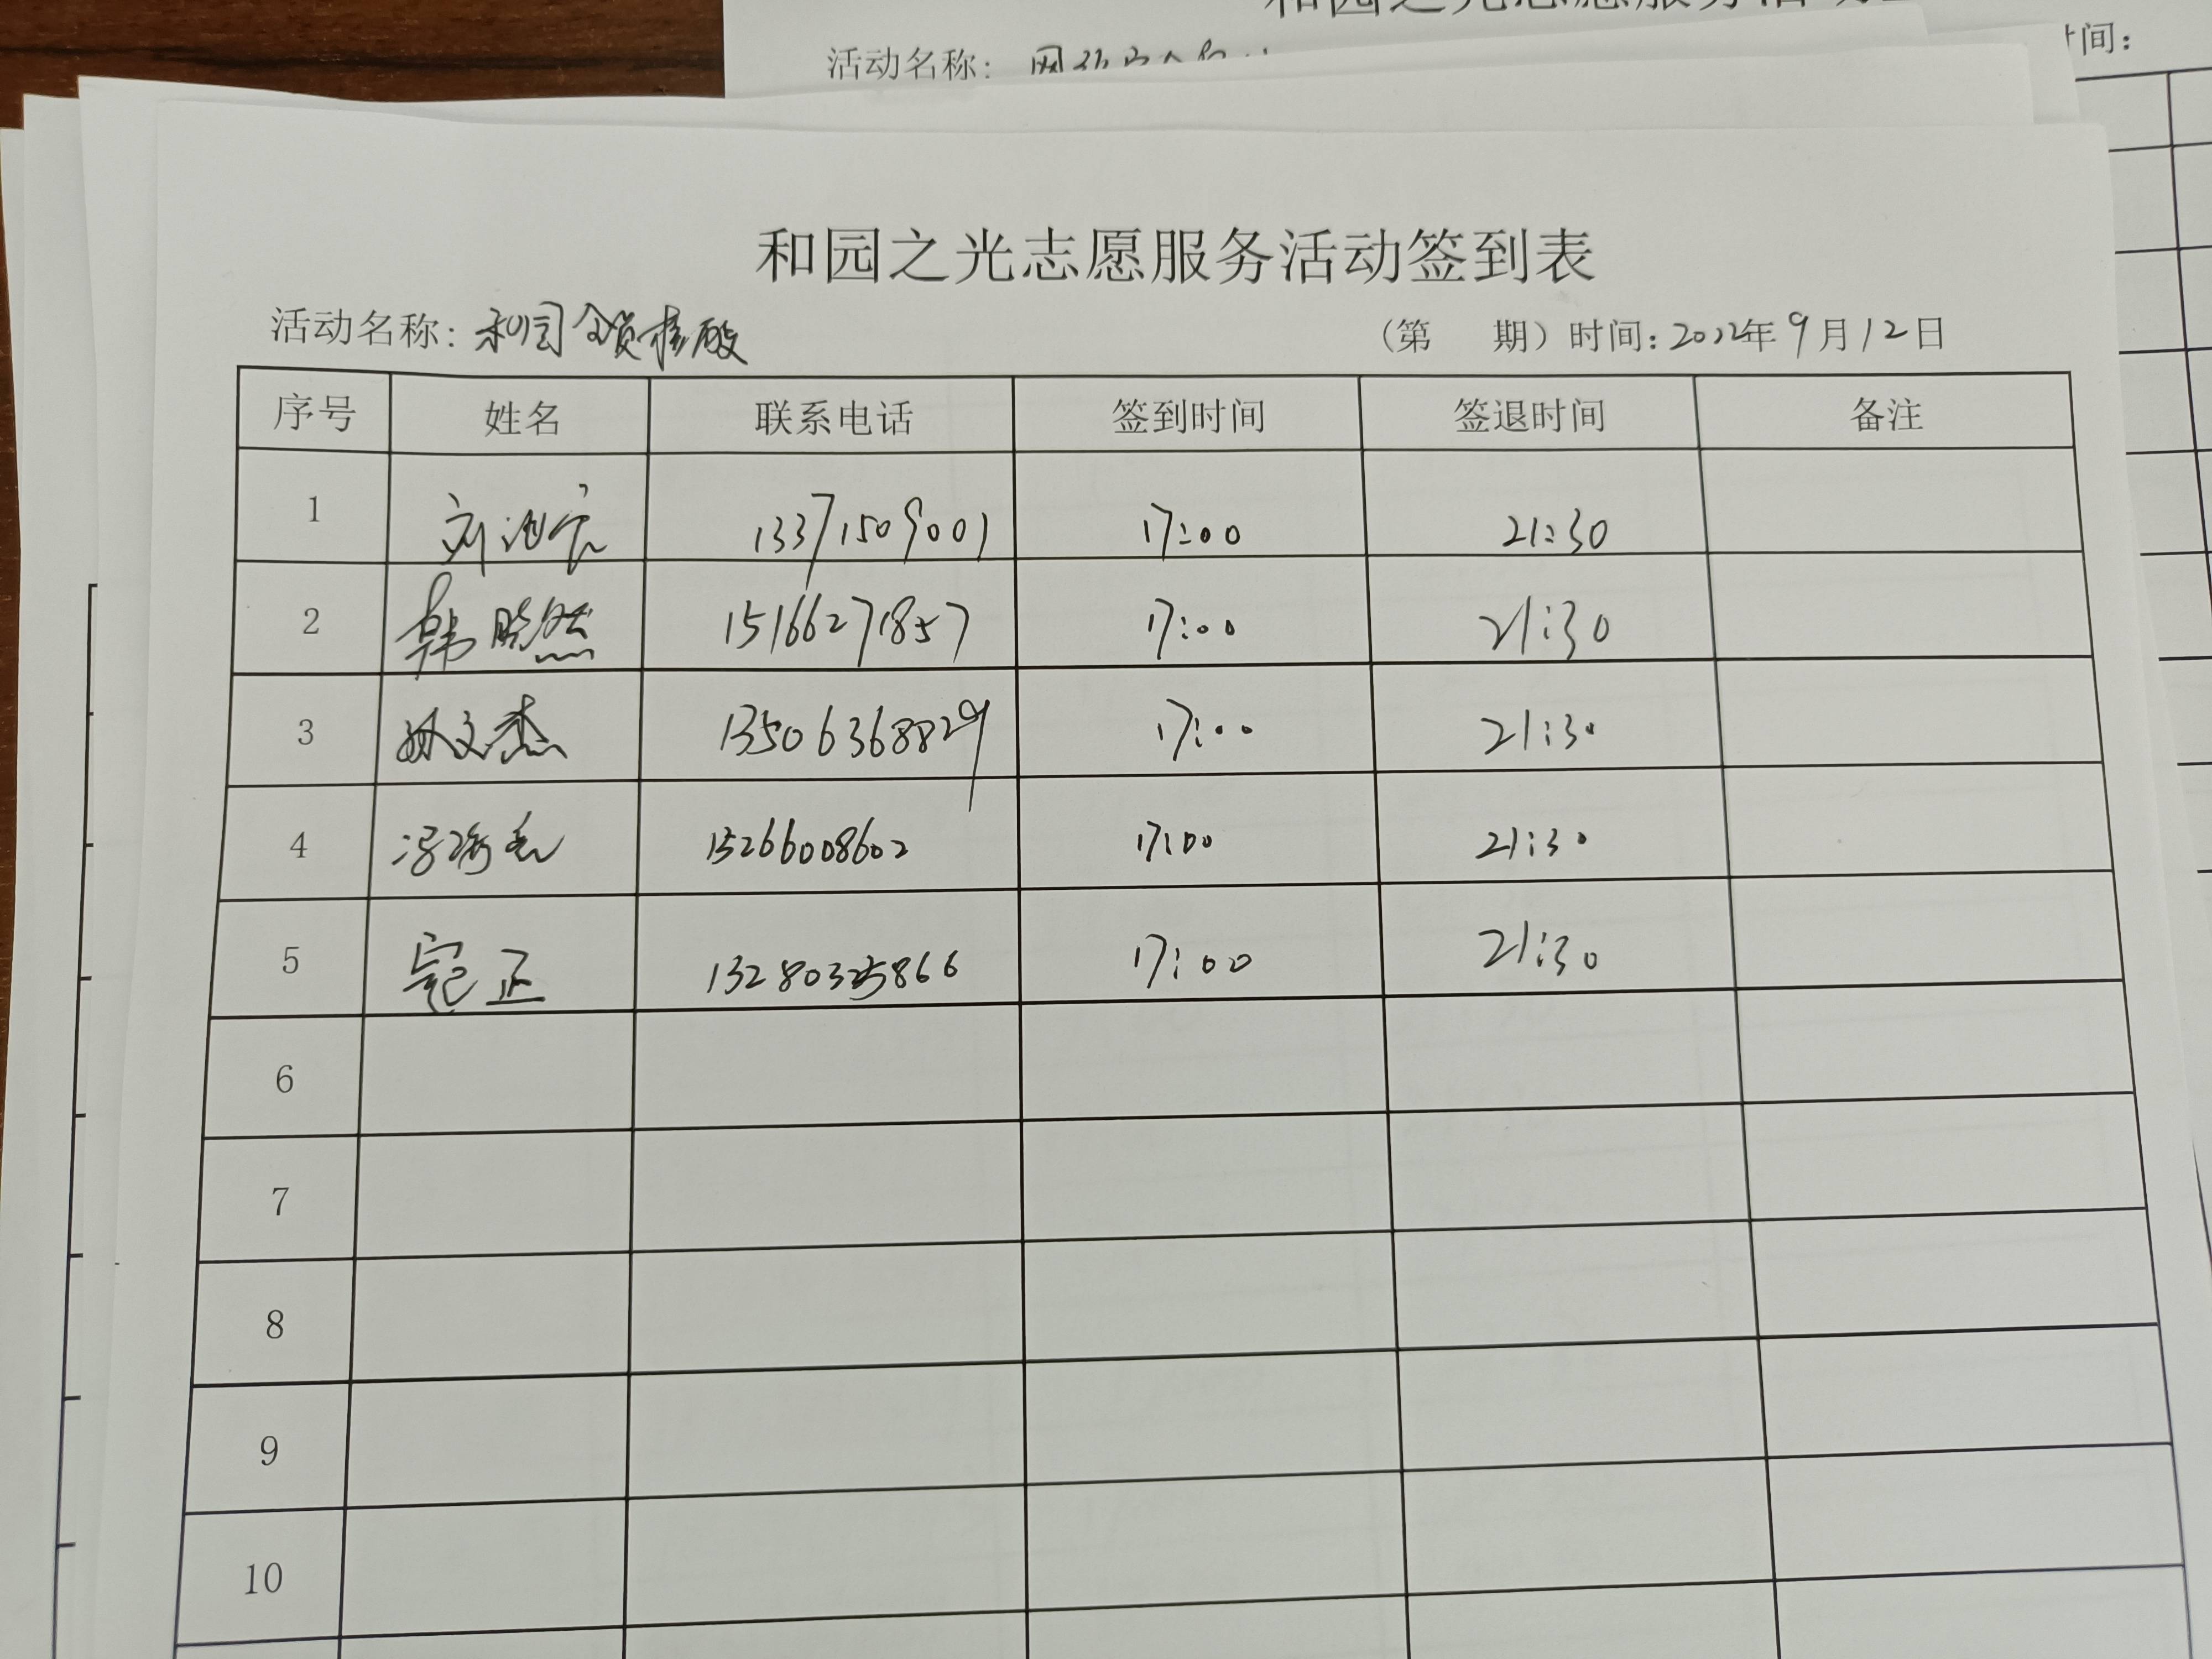 活动名称：
时间：
和园之光志愿服务活动签到表
活动名称：和园全员核酸 （第 期）时间：2022年9月12日
序号 姓名 联系电话 签到时间 签退时间 备注
1 刘 13371509001 17:00 21:30
2 韩晓然 15166271857 17:00 21:30
3 孙文杰 13506368829 17:00 21:30
4 冯 15266008602 17:00 21:30
5 寇正 13280325866 17:00 21:30
6
7
8
9
10